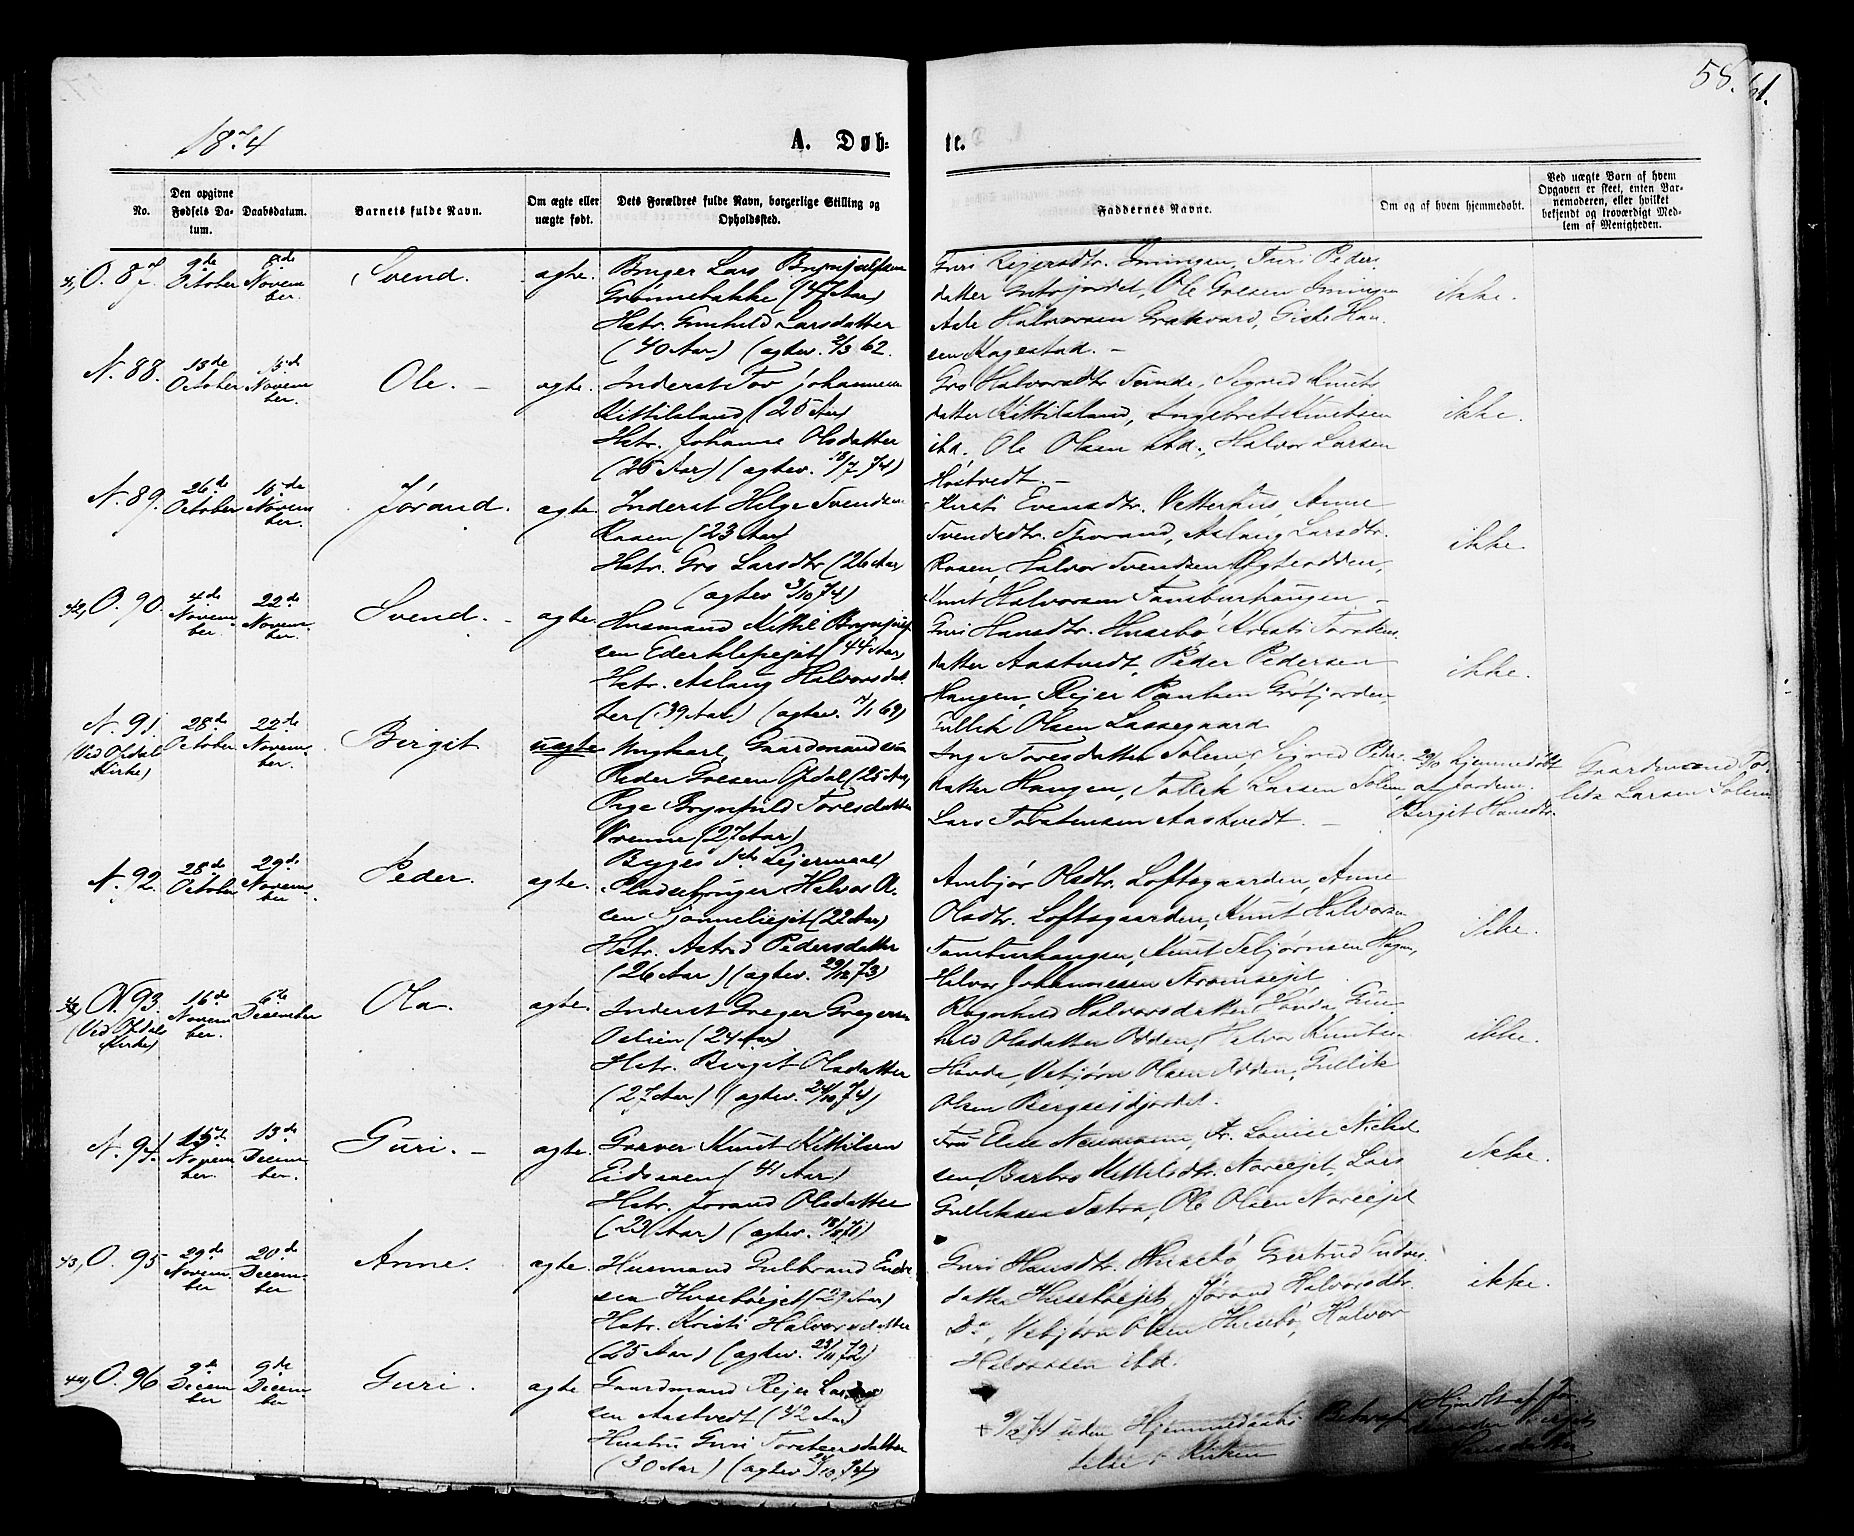 58.
61.
1874
A. Døb-
te.
No.
Den opgivne Fødsels Da-tum.
Daabsdatum.
Barnets fulde Navn.
Om ægte eller uægte født.
Dets Forældres fulde Navn, borgerlige Stilling og Opholdssted.
Faddernes Navne.
Om og af hvem hjemmedøbt.
Ved uægte Barn af hvem Opgaven er skeet, enten Bar-nemoderen, eller hvilket bekjendt og troværdigt Med-lem af Menigheden.
41, O. 87. 9de October 8de Novem-ber Svend. ægte. Bruger Lars Brynjulfsen
Grønnebakke (47 Aar)
Hstr. Gunhild Larsdatter
(40 Aar) (ægtev. 2/3 62.
Guri Reiersdtr. Turi Peders-
datter Ole
Halvorsen Giske Han-
sen
ikke.
N. 88. 13de October 15de Novem-ber. Ole. - ægte. Inderst Tov Johannesen
Kittilsland (25 Aar)
Hstr. Johanne Olsdatter
(26 Aar) (ægtev. 13/7 74)
Gro Halvorsdtr. Sigrid Knuts-
datter Kittilsland, Ingebret Knutsen
ibd. Ole Olsen ibd., Halvor Larsen
ikke.
N. 89. 26de October 15de Novem-ber. Jørand. ægte. Inderst Helge Svendsen
Raaen (23 Aar)
Hstr. Gro Larsdtr (26 Aar)
(ægtev 3/10 74)
Kirsti Evensdtr. Vetterhus, Anne
Svendsdtr. Aslaug Larsdtr.
Halvor Svendsen
Knut Halvorsen Tamburhaugen -
ikke.
42, O. 90. 4de Novem-ber. 22de Novem-ber. Svend. - ægte. Husmand Kittil Brynjulf-
sen Ederklepejet (44 Aar)
Hstr. Aslaug Halvorsdat-
ter (39 Aar) (ægtev. 7/1 69)
Guri Hansdtr. Husebø, Kristi Torstens-
datter Aastvedt, Peder Pedersen
Haugen, Rejer Paulsen
Gullik Olsen
ikke.
N. 91. (Ved Opdal Kirke) 28de October 22de Novem-ber. Birgit uægte Ungkarl, Gaardmandssøn
Peder Olsen Opdal (25 Aar)
Pige Brynhild Toresdatter
(27 Aar)
Begges 1ste Lejermaal
Toresdatter Solem, Sigrid Peders-
datter Haugen, Tollef Larsen Solem,
Lars Torstensen Aastvedt. -
29/10 hjemmedøbt
af Jordem.
Birgit Hansdtr.
Gaardmand Tol-
lef Larsen Solem
N. 92. 28de October 29de Novem-ber Peder. ægte. Pladsebruger Halvor Ol-
sen Sjonneliejet (22 Aar)
Hstr. Astrid Pedersdatter
(26 Aar) (ægtev. 29/12 73)
Anebjør Olsdtr. Loftsgaarden, Anne
Olsdtr. Loftsgaarden, Knut Halvorsen
Tamburhaugen, Knut Tebjørnsen Hagen,
Halvor Johannessen
ikke.
N. 93. (Ved Opdal Kirke) 16de Novem-ber. 6te December Ola. ægte. Inderst Greger Gregersen
(24 Aar)
Hstr. Birgit Olsdatter
(27 Aar) (ægtev. 24/10 74)
Ragnhild Halvorsdatter Hønda, Gun-
hild Olsdatter Odden, Halvor Knutsen
Hønda, Vebjørn Olsen Odden, Gullik
Olsen
ikke.
N. 94. 15de Novem-ber. 13de Decem-ber. Guri. - ægte. Garver Knut Kittilsen
Eidsaaen (41 Aar)
Hstr. Jørand Olsdatter
(23 Aar) (ægtev. 71)
Fru Else Neumann, Fr. Louise Niels-
sen, Barbro Kittilsdtr. Noreejet, Lars
Gulliksen Sætra, Ole Olsen Noreejet
ikke.
43, O. 95 29de Novem-ber 20de Decem-ber Anne. ægte. Husmand Gulbrand End-
sen Husebøejet (29 Aar)
Hstr. Kristi Halvorsdatter
(25 Aar) (ægtev. 23/11 72)
Guri Hansdtr. Husebø, Gertrud
datter Husebøejet, Jørand Halvorsdtr.
Do, Vebjørn Olsen Husebø, Halvor
Halvorsen ibd.
ikke.
44, O. 96 9de Decem-ber 9de Decem-ber Guri. ægte Gaardmand Rejer Lar-
sen Aastvedt (42 Aar)
Hustru Guri Torstensdatter
(30 Aar) (ægtev. 74)
+ 9/12 74 uden Hjemmedaabs Bekræf-
telse i Kirken
Hjdøbt af Jor-
demoder Birgit
Hansdatter